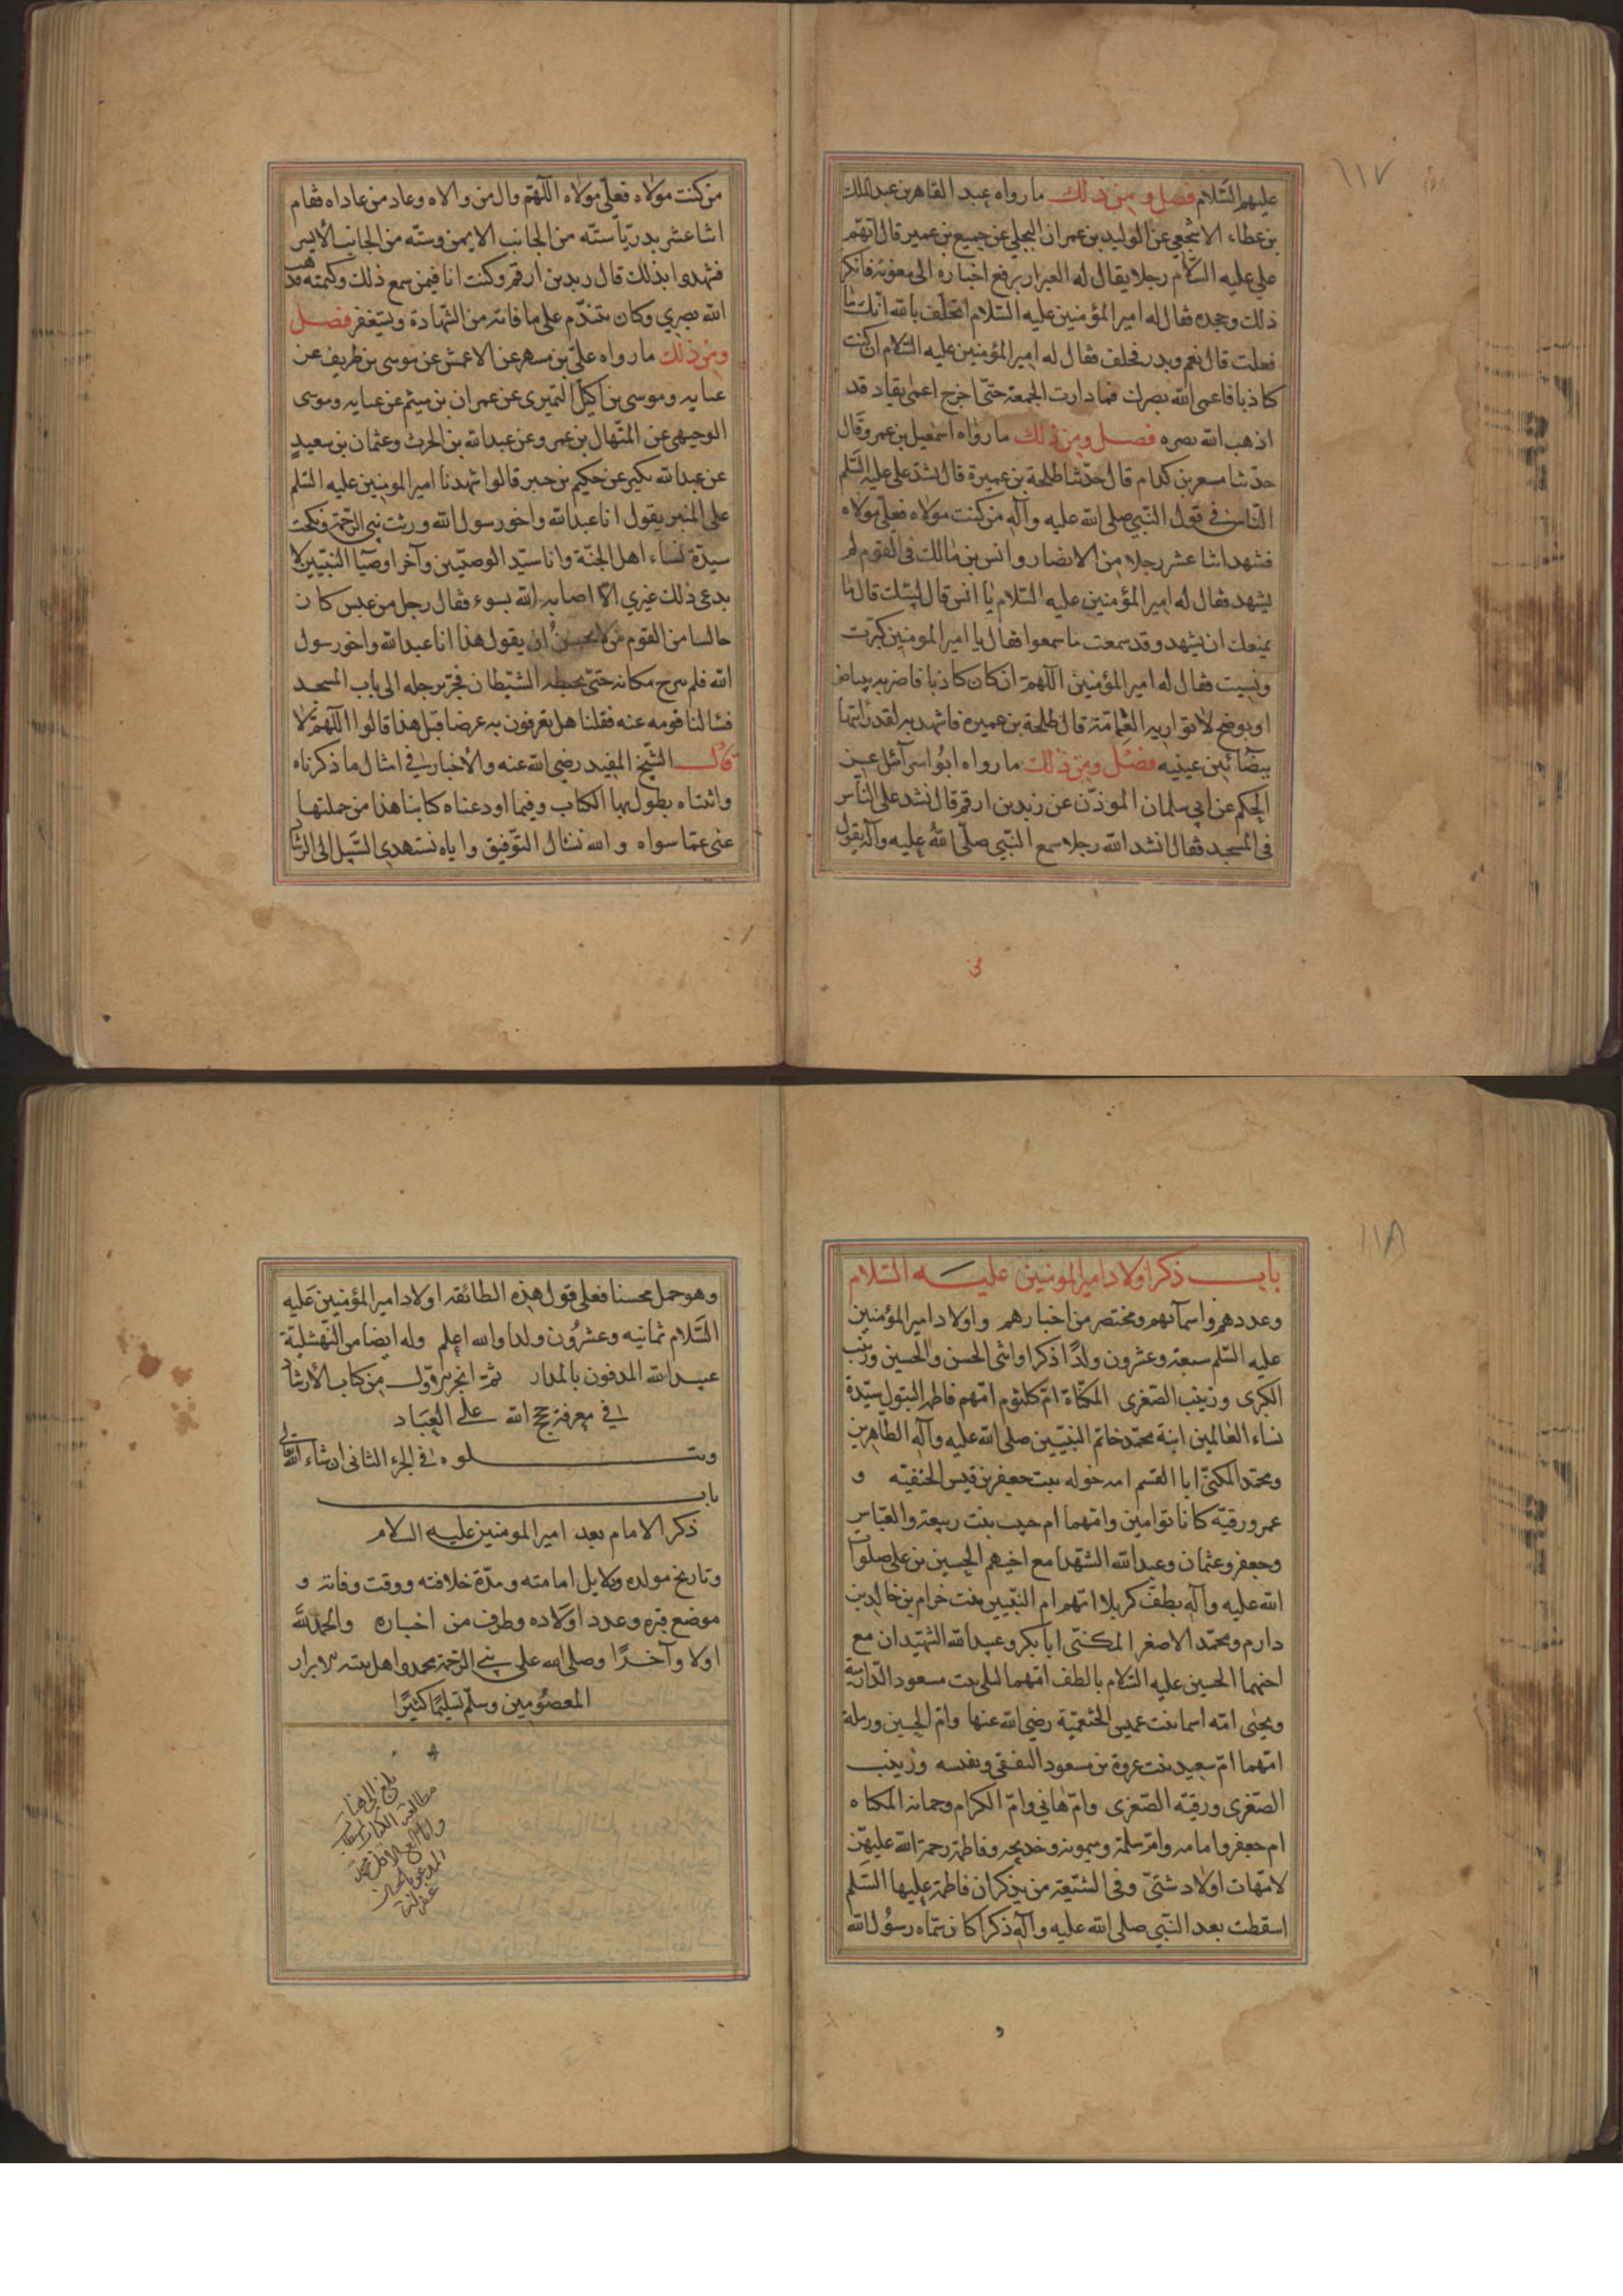 ١١٧
عليهم السلام فصل ومن ذلك ما رواه عبد القاهر بن عبد الملك
بن عطاء الاشجعي عن الوليد بن عمران البجلي عن جميع بن عمير قال اتهم
علي عليه السلام رجلا يقال له العيزار برفع اخباره الى معوية فانكر
ذلك وجحده فقال له امير المؤمنين عليه السلام اتحلف بالله انك ما
فعلت قال نعم وبدر فحلف فقال له امير المؤمنين عليه السلام ان كنت
كاذبا فاعمى الله بصرك فما دارت الجمعة حتى اخرج اعمى يقاد قد
اذهب الله بصره فصل ومن ذلك ما رواه اسمعيل بن عمرو قال
حدثنا مسعر بن كدام قال حدثنا طلحة بن عميرة قال نشد علي عليه السلم
الناس في قول النبي صلى الله عليه وآله من كنت مولاه فعلي مولاه
فشهد اثنا عشر رجلا من الانصار وانس بن مالك في القوم لم
يشهد فقال له امير المؤمنين عليه السلام يا انس قال لبيك قال ما
يمنعك ان تشهد وقد سمعت ما سمعوا فقال يا امير المومنين كبرت
ونسيت فقال له امير المؤمنين اللهم ان كان كاذبا فاضربه ببياض
او بوضح لا تواريه العمامة قال طلحة بن عميرة فاشهد بالله لقد رايتها
بيضاء بين عينيه فصل ومن ذلك ما رواه ابو اسرآئل عن
الحكم عن ابي سلمان الموذن عن زيد بن ارقم قال نشد علي الناس
في المسجد فقال انشد الله رجلا سمع النبي صلى الله عليه وآله يقول
من كنت مولاه فعلي مولاه اللهم وال من والاه وعاد من عاداه فقام
اثنا عشر بدريا ستة من الجانب الايمن وستة من الجانب الأيسر
فشهدوا بذلك قال زيد بن ارقم وكنت انا فيمن سمع ذلك وكتمته فذهب
الله ببصري وكان يتندم على ما فاته من الشهادة ويستغفر فصل
ومن ذلك ما رواه علي بن مسهر عن الاعمش عن موسى بن طريف عن
عبايه وموسى بن اكيل النميرى عن عمران بن ميثم عن عبايه وموسى
الوجيهى عن المنهال بن عمرو عن عبد الله بن الحرث وعثمان بن سعيد
عن عبد الله بكير عن حكيم بن جبير قالوا شهدنا امير المومنين عليه السلم
على المنبر يقول انا عبد الله واخو رسول الله ورثت نبي الرحمة ونكحت
سيدة نساء اهل الجنة وانا سيد الوصيين وآخر اوصيآ النبيين لا
يدعى ذلك غيري الا اصابه الله بسوء فقال رجل من عبس كان
جالسا من القوم من لا يحسن ان يقول هذا انا عبد الله واخو رسول
الله فلم يبرح مكانه حتى تخبطه الشيطان فجر برجله الى باب المسجد
فسالنا قومه عنه فقلنا هل تعرفون به عرضا قبل هذا قالوا اللهم لا
قال الشيخ المفيد رضي الله عنه والأخبار في امثال ما ذكرناه
واثبتناه يطول بها الكتاب وفيما اودعناه كتابنا هذا من جملتها
غنى عما سواه والله نسال التوفيق واياه نستهدي السبيل الى الرشاد
١١٨
باب ذكر اولاد امير المومنين عليه السلام
وعددهم واسمآئهم ومختصر من اخبارهم واولاد امير المؤمنين
عليه السلم سبعة وعشرون ولدًا ذكرا وانثى الحسن والحسين وزينب
الكبرى وزينب الصغرى المكناة ام كلثوم امهم فاطمة البتول سيدة
نساء العالمين ابنة محمد خاتم النبيين صلى الله عليه وآله الطاهرين
ومحمد المكنى ابا القسم امه خوله بنت جعفر بن قيس الحنفيه و
عمر ورقية كانا توامين وامهما ام حبيب بنت ربيعة والعباس
وجعفر وعثمان وعبد الله الشهدا مع اخيهم الحسين بن علي صلوات
الله عليه وآله بطف كربلا امهم ام النبيين بنت خرام بن خالد بن
دارم ومحمد الاصغر المكنى ابا بكر وعبيد الله الشهيدان مع
اخيهما الحسين عليه السلام بالطف امهما ليلى بنت مسعود الدارمية
ويحيى امه اسما بنت عميس الخثعمية رضي الله عنها وام الحسين ورملة
امهما ام سعيد بنت عروة بن مسعود الثقفى ونفيسه وزينب
الصغرى ورقيه الصغرى وام هاني وام الكرام وجمانه المكناه
ام جعفر وامامه وام سلمة وميمونه وخديجه وفاطمة رحمة الله عليهن
لامهات اولاد شتى وفى الشيعة من يذكر ان فاطمة عليها السلم
اسقطت بعد النبي صلى الله عليه وآله ذكرا كان سماه رسول الله
وهو حمل محسنا فعلى قول هذه الطائفه اولاد امير المؤمنين عليه
السلام ثمانيه وعشرون ولدا والله اعلم وله ايضا من النهشلية
عبيد الله المدفون بالمدار تمت الجزء الاول من كتاب الأرشاد
في معرفة حجج الله على العباد
ويتلوه في الجزء الثانى ان شاء الله تعالى
باب
ذكر الامام بعد امير المومنين عليه السلام
وتاريخ مولده ودلايل امامته ومدة خلافته ووقت وفاته و
موضع قبره وعدد اولاده وطرف من اخباره والحمد لله
اولا وآخرًا وصلى الله على نبي الرحمة محمد واهل بيته الابرار
المعصومين وسلم تسليمًا كثيرًا
بلغ الى هنا
مطالعة الكتاب
غفر له